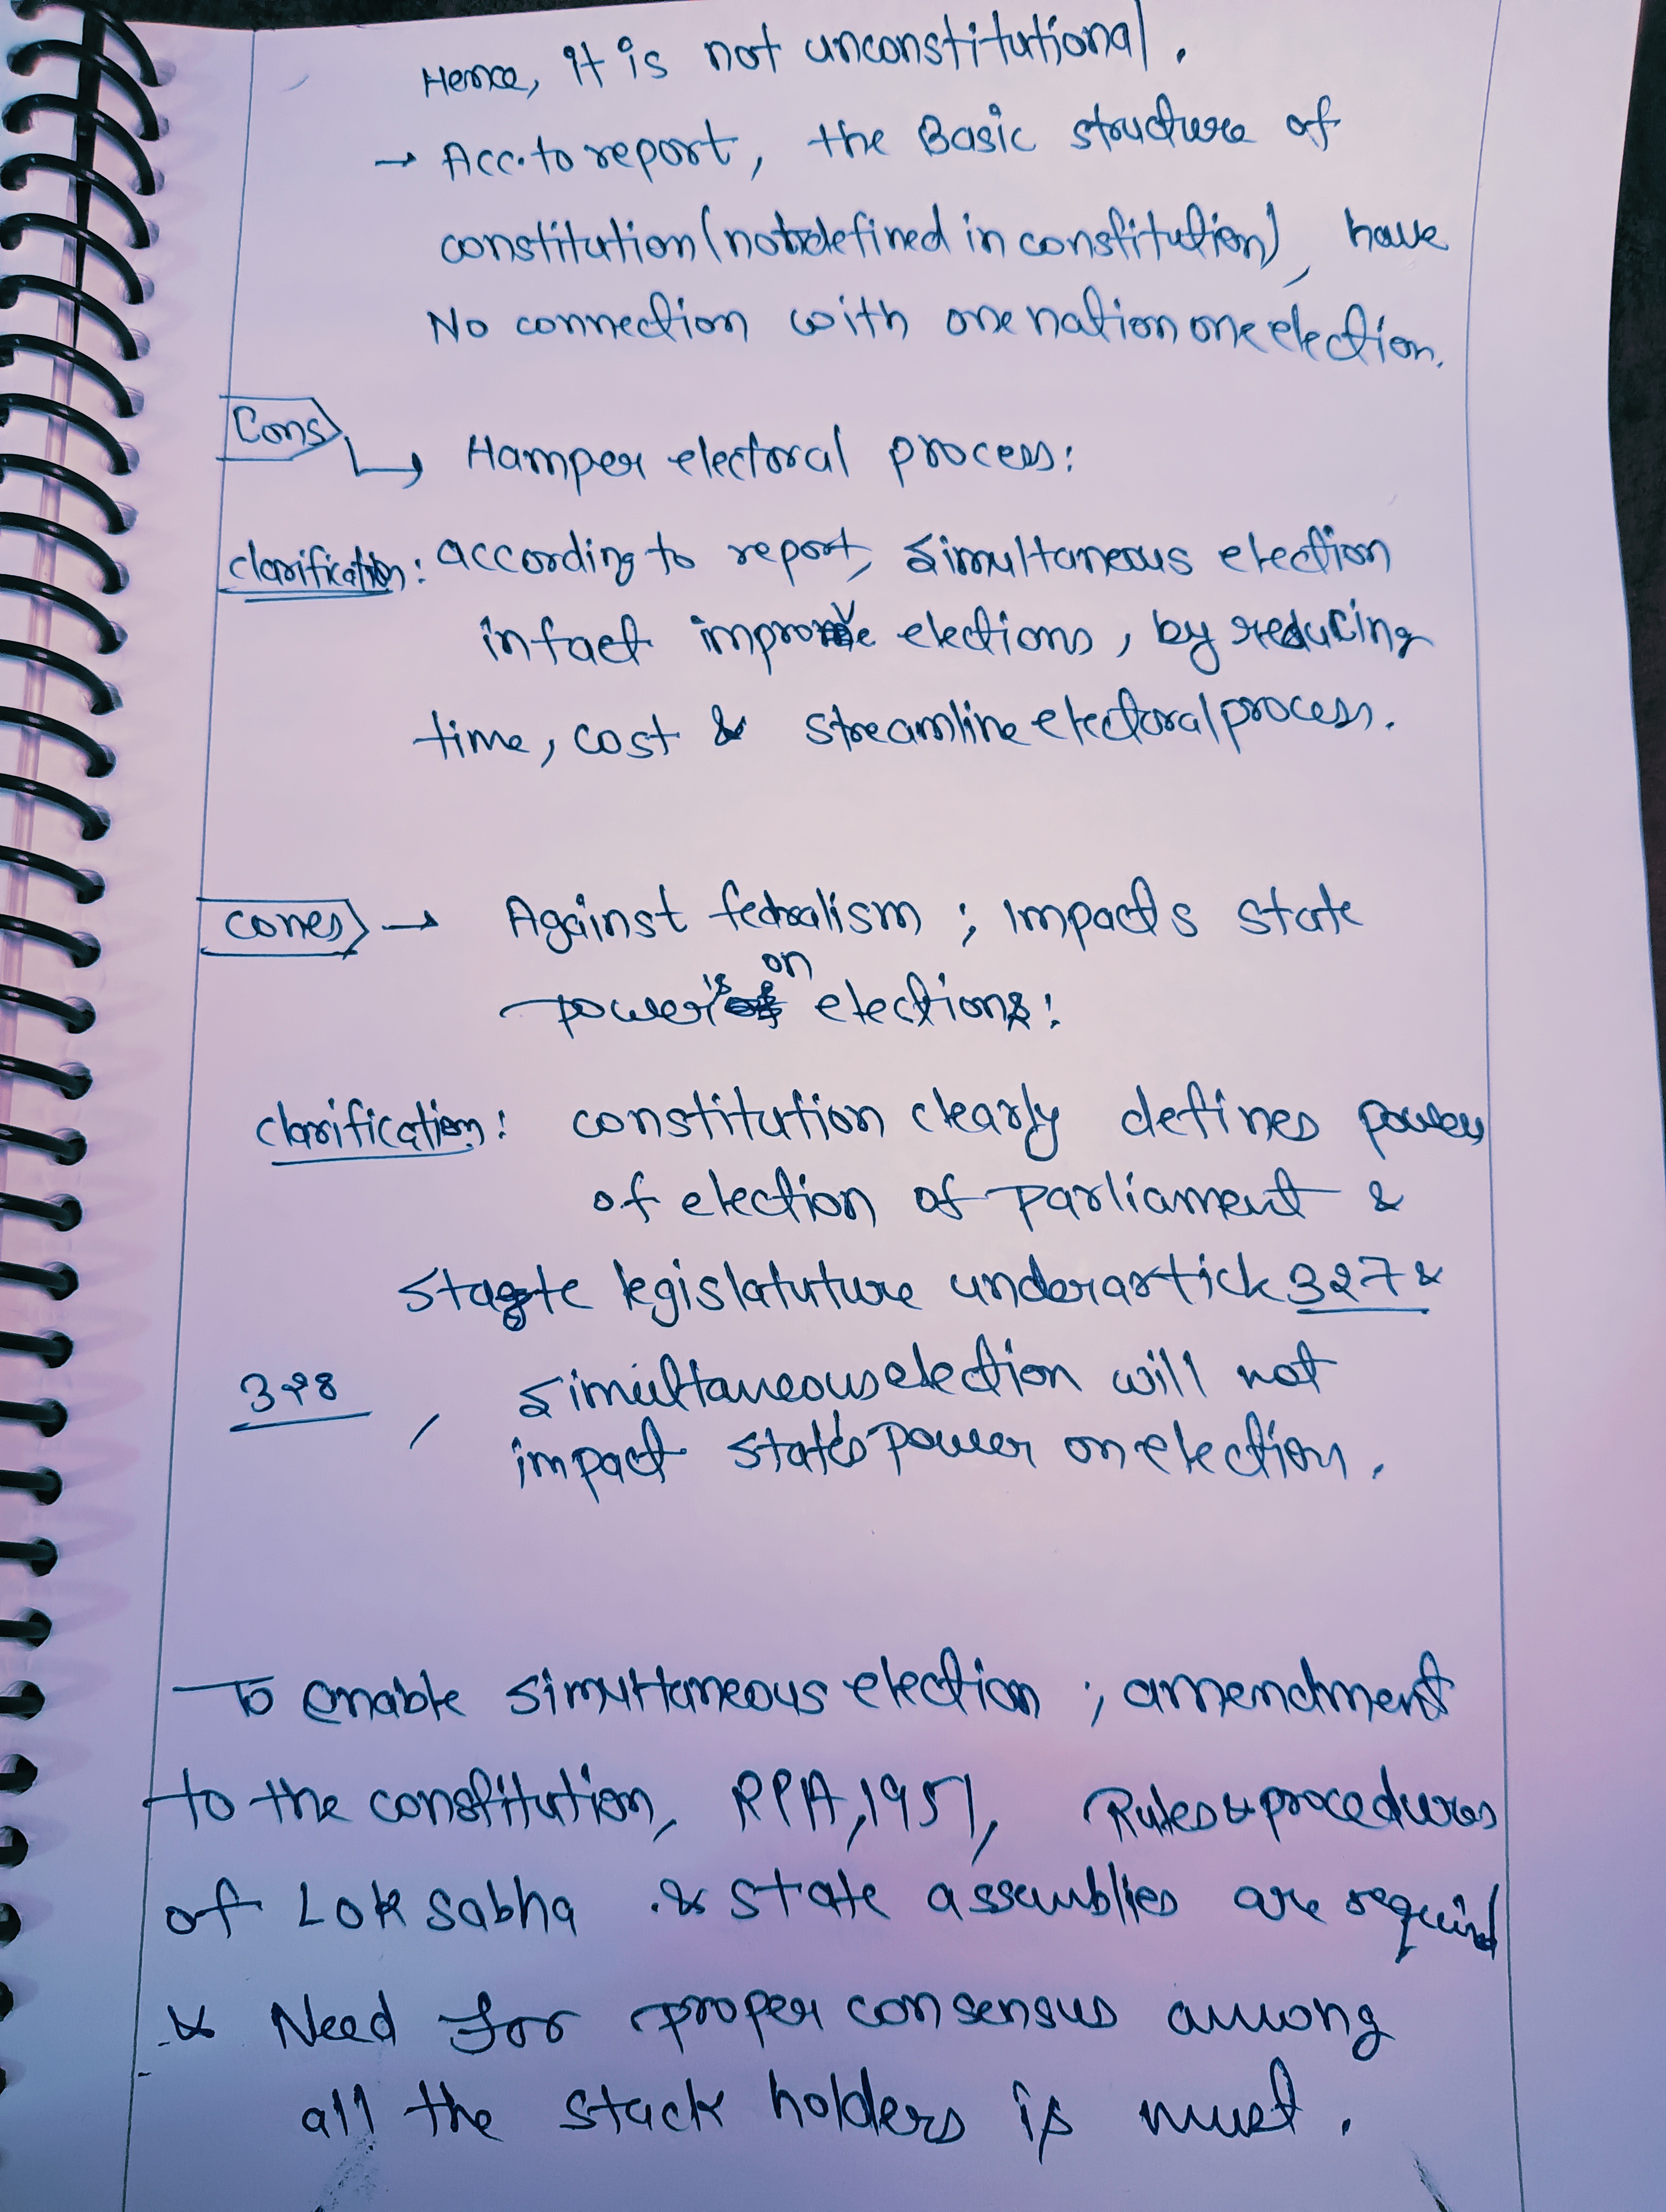 Hence, it is not unconstitutional.
→ Acc. to report, the Basic structure of
constitution (not defined in constitution), have
No connection with one nation one election.
Cons
↳ Hamper electoral process:
clarification: according to report, simultaneous election
infact improve elections, by reducing
time, cost & streamline electoral process.
cones → Against federalism ; Impacts state
power's on elections:
clarification: constitution clearly defines power
of election of Parliament &
State legislatuture under article 327 &
328, simultaneous election will not
impact state's power on election.
To enable simultaneous election ; amendment
to the constitution, RPA, 1951, Rules & procedures
of Lok sabha & state assemblies are required
& Need for proper consensus among
all the stack holders is must.